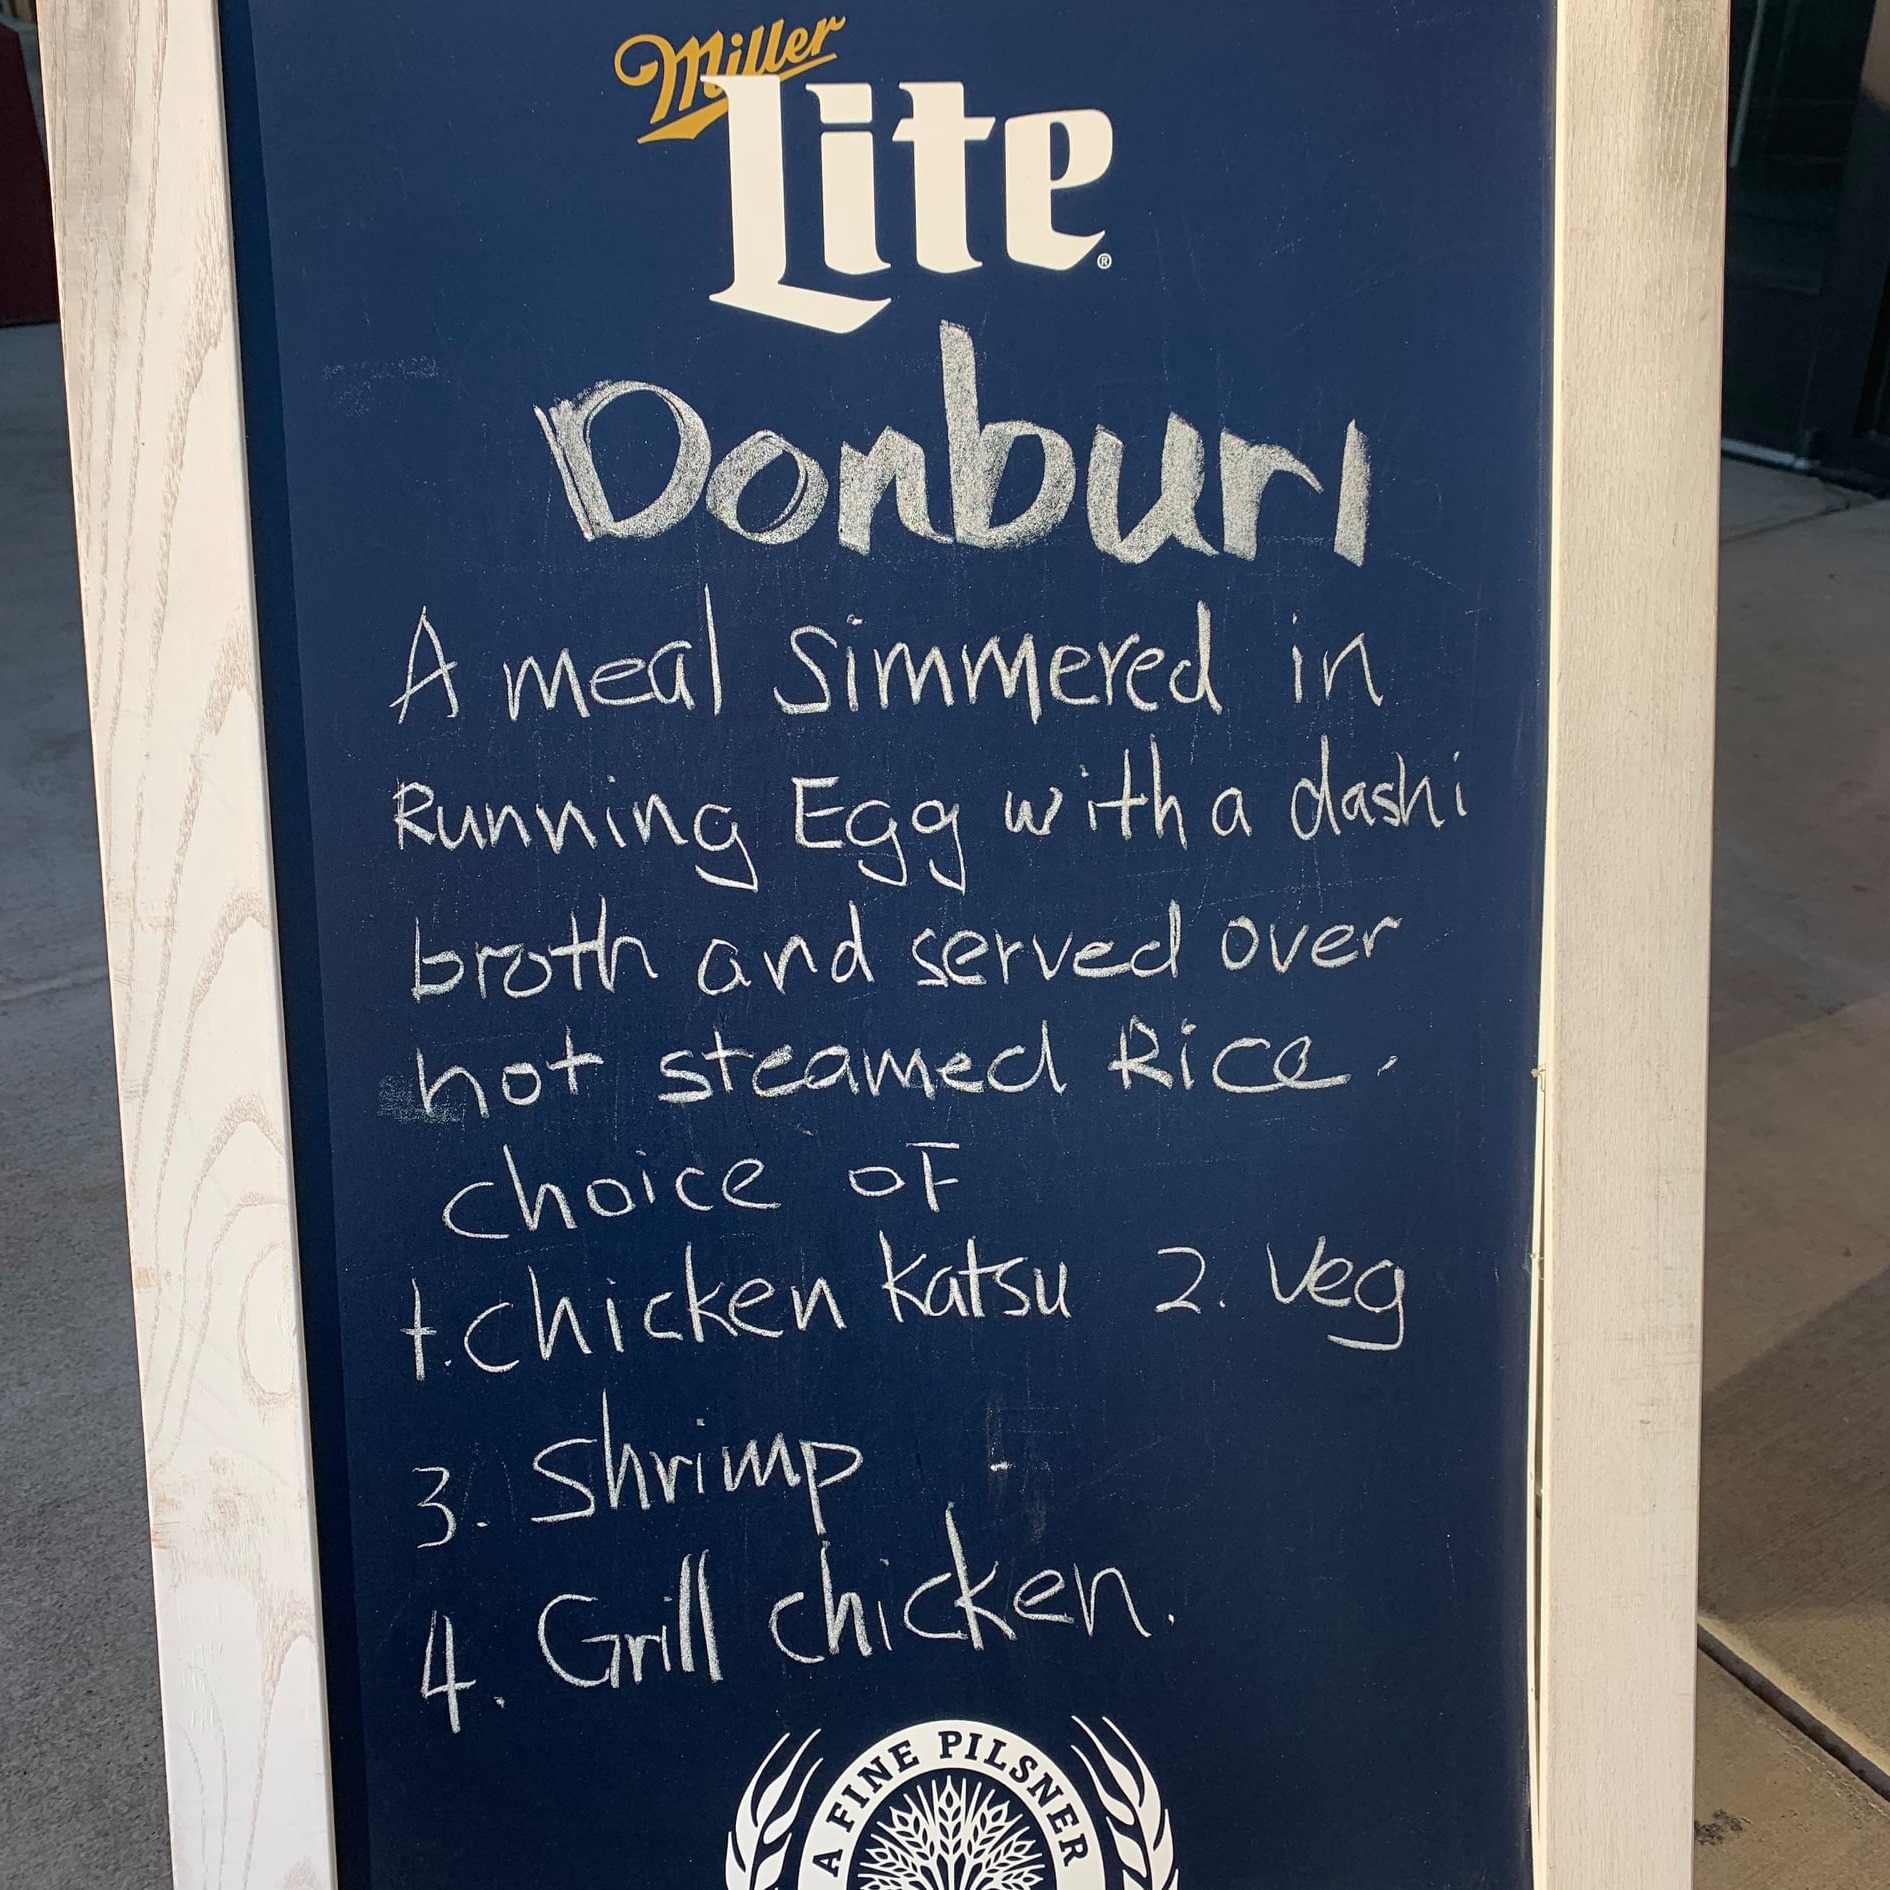 Miller
Lite®
Donburi
A meal simmered in
Running Egg with a dashi
broth and served over
hot steamed Rice.
choice of
1. chicken katsu 2. Veg
3. shrimp
4. Grill chicken.
A FINE PILSNER